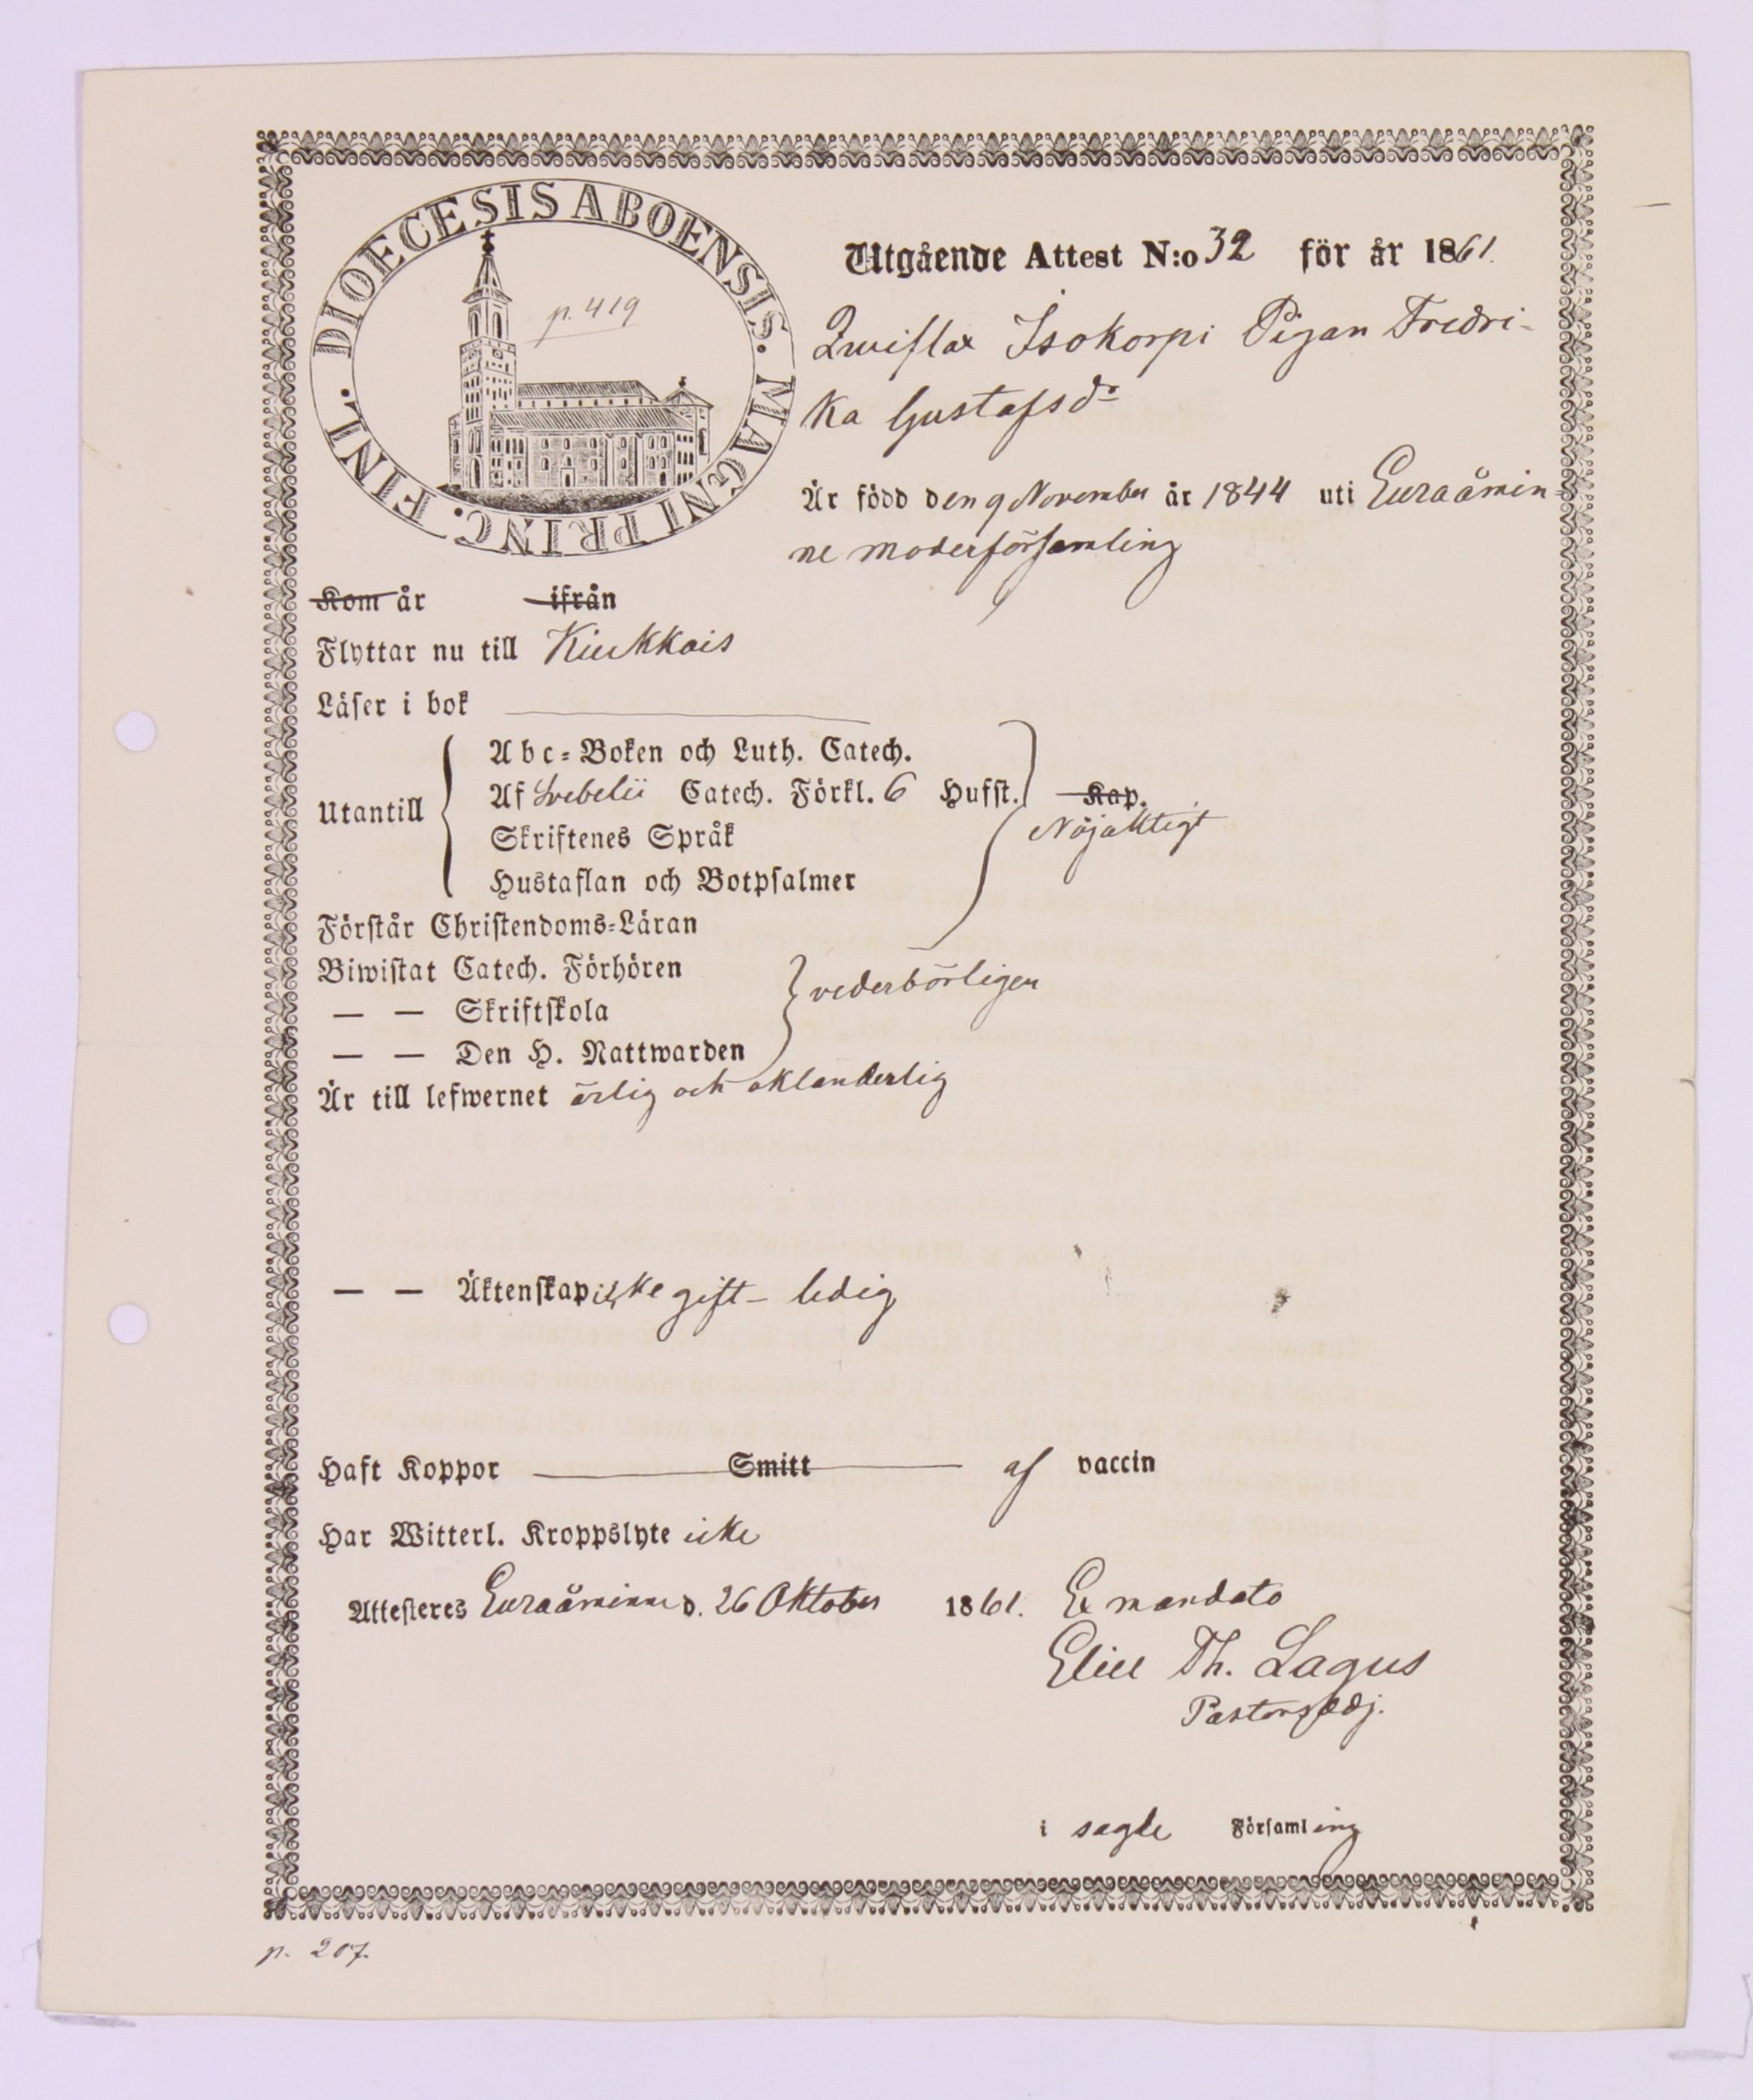 DIOECESIS ABOENSIS. MAGNI PRINC. FINL.
p. 419
Utgående Attest N:o 32 för år 1861.
Isokorpi Pigan Fredri-
ka Gustafsdr
Är född den 9 November år 1844 uti Euraåmin-
ne moderförsamling
Kom år ifrån
Flyttar nu till Kiukkais
Läser i bok
Utantill
Abc-Boken och Luth. Catech.
Af Svebelii Catech. Förkl. 6 Hufst. Kap.
Nöjaktigt
Skriftenes Språk
Hustaflan och Botpsalmer
Förstår Christendoms-Läran
Biwistat Catech. Förhören
vederbörligen
— — Skriftskola
— — Den H. Nattwarden
Är till lefwernet ärlig och oklanderlig
— — Äktenskap icke gift - ledig
Haft Koppor Smitt af vaccin
Har Witterl. Kroppslyte icke
Attesteres Euraåminne d. 26 Oktober 1861. Ex mandato
Eliel Th. Lagus
Pastorsadj.
i sagde Församling
p. 207.